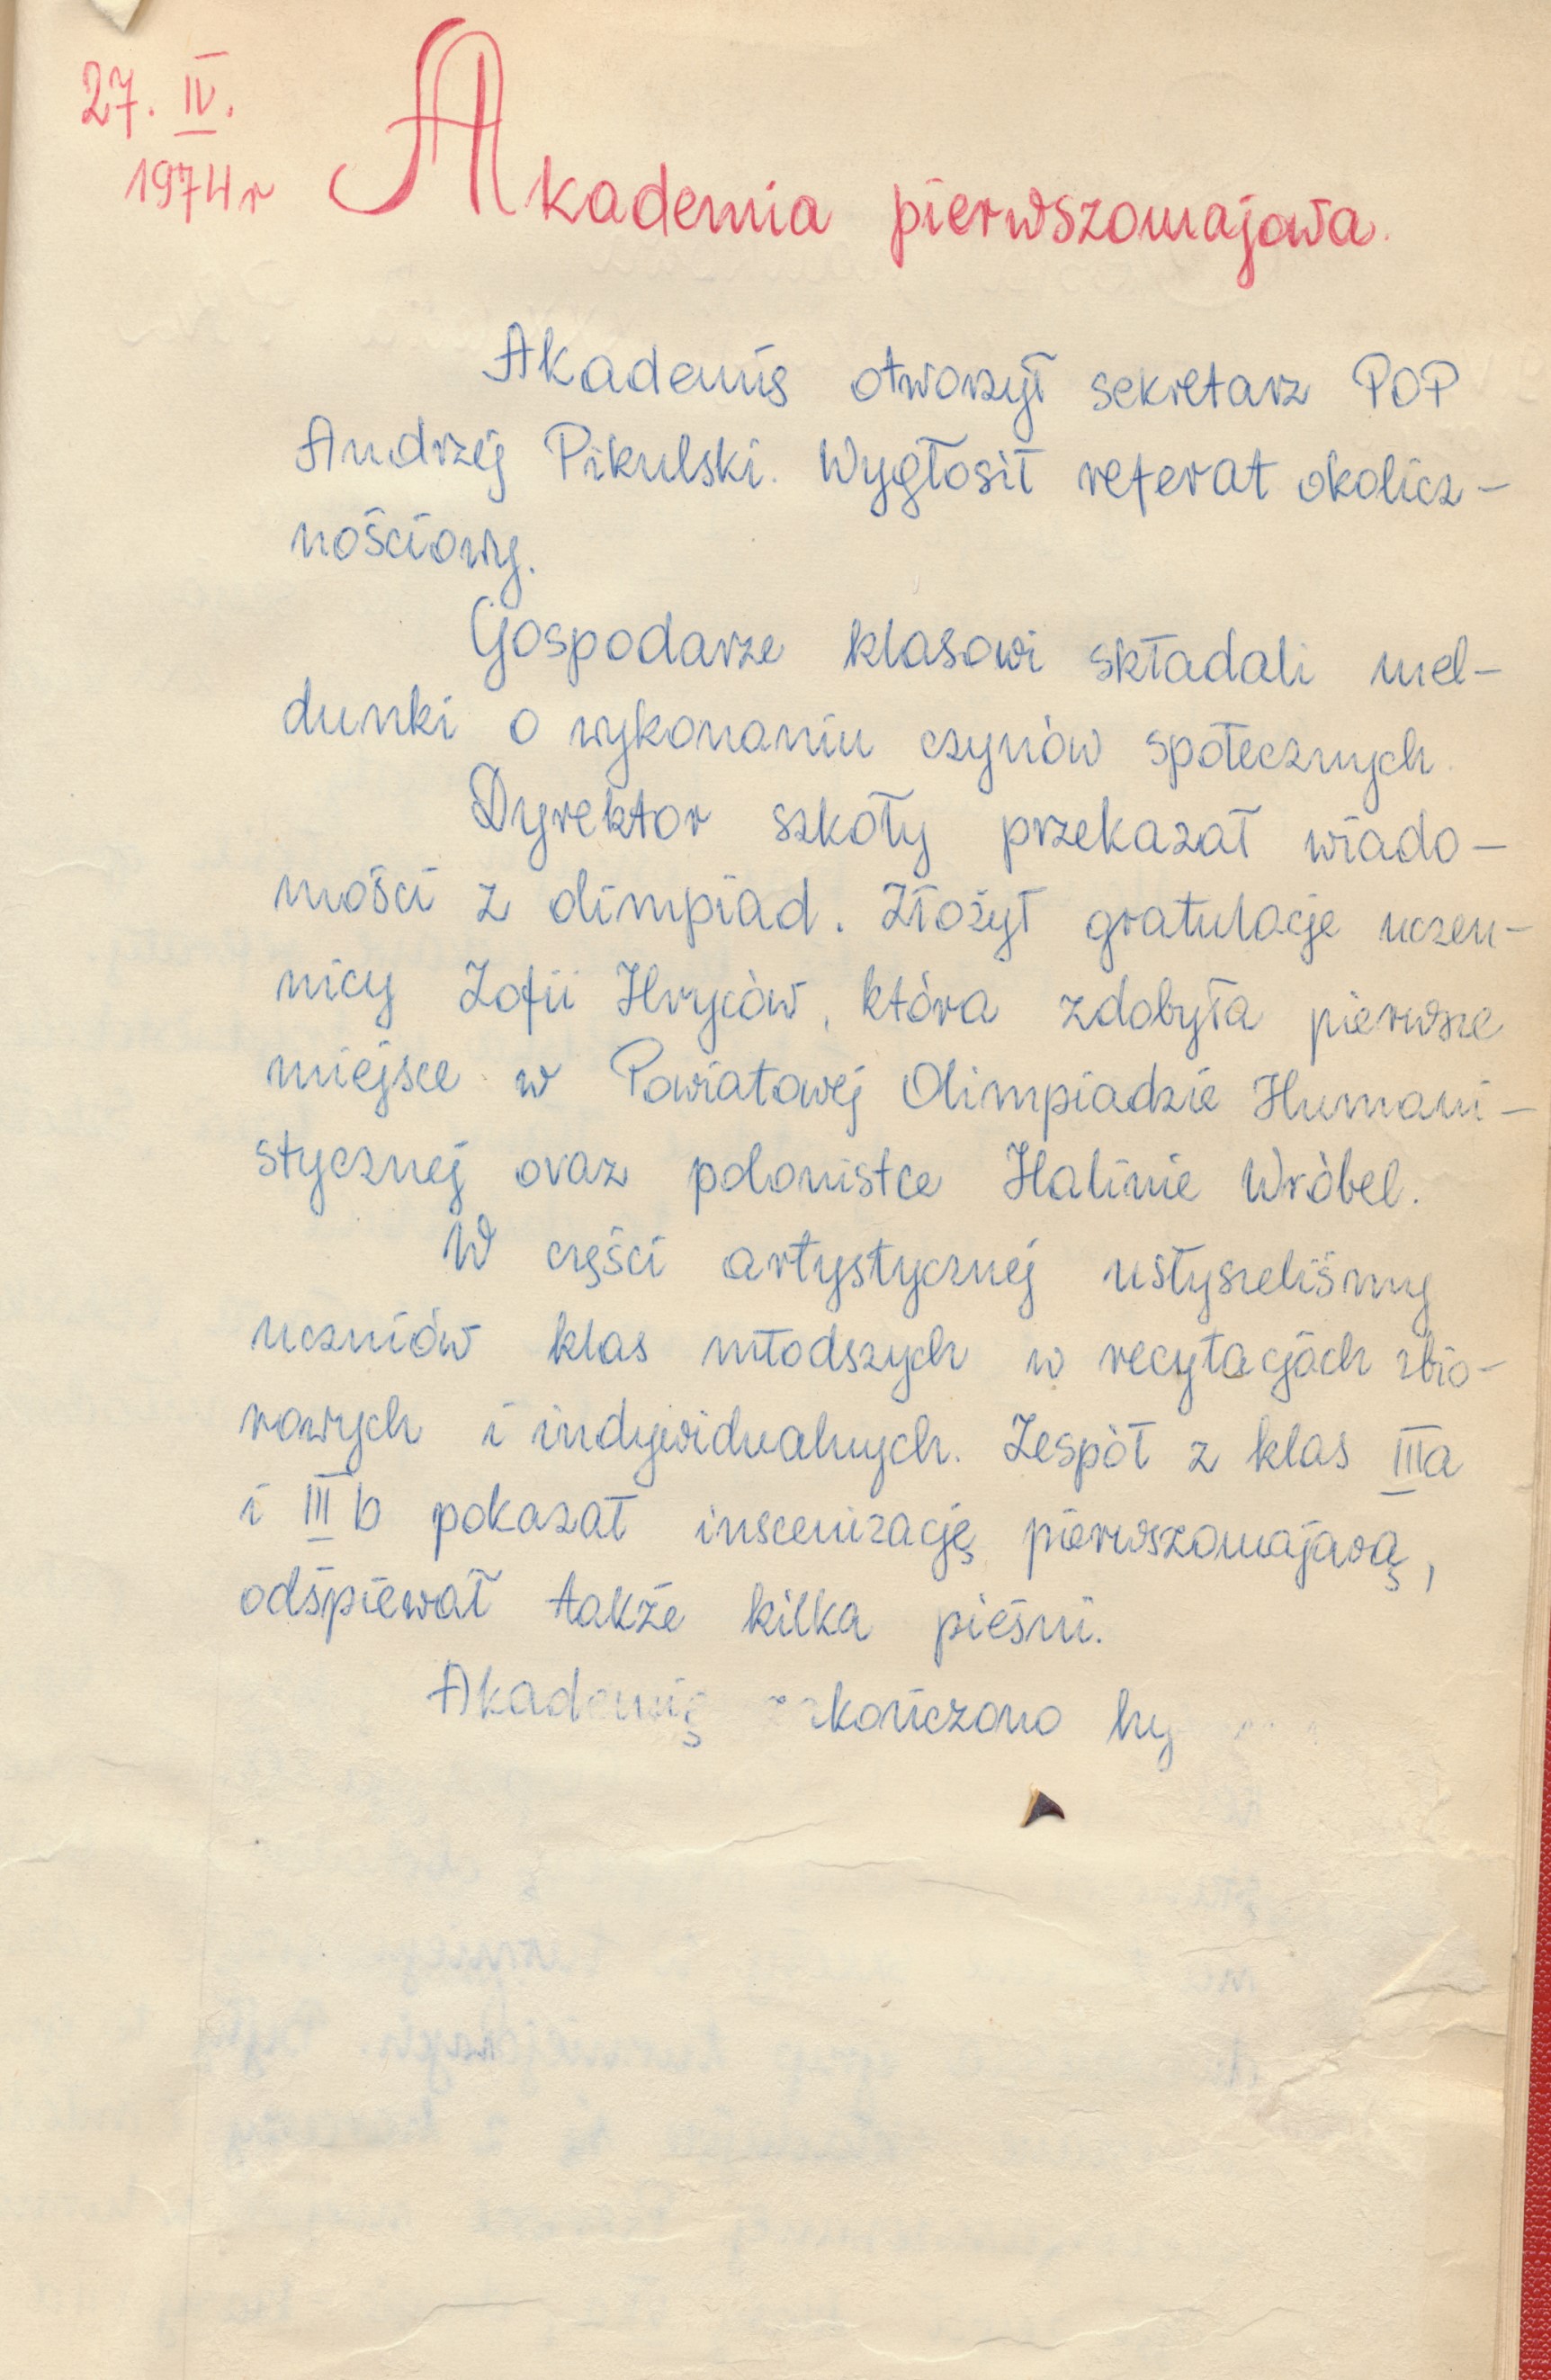 27. IV.
1974r
Akademia pierwszomajowa.
Akademię otworzył sekretarz POP
Andrzej Pikulski. Wygłosił referat okolicz-
nościowy.
Gospodarze klasowi składali mel-
dunki o wykonaniu czynów społecznych.
Dyrektor szkoły przekazał wiado-
mości z olimpiad. Złożył gratulacje uczen-
nicy Zofii Hryców, która zdobyła pierwsze
miejsce w Powiatowej Olimpiadzie Humani-
stycznej oraz polonistce Halinie Wróbel.
W części artystycznej usłyszeliśmy
uczniów klas młodszych w recytacjach zbio-
rowych i indywidualnych. Zespół z klas IIIa
i IIIb pokazał inscenizację pierwszomajową,
odśpiewał także kilka pieśni.
Akademię zakończono hy